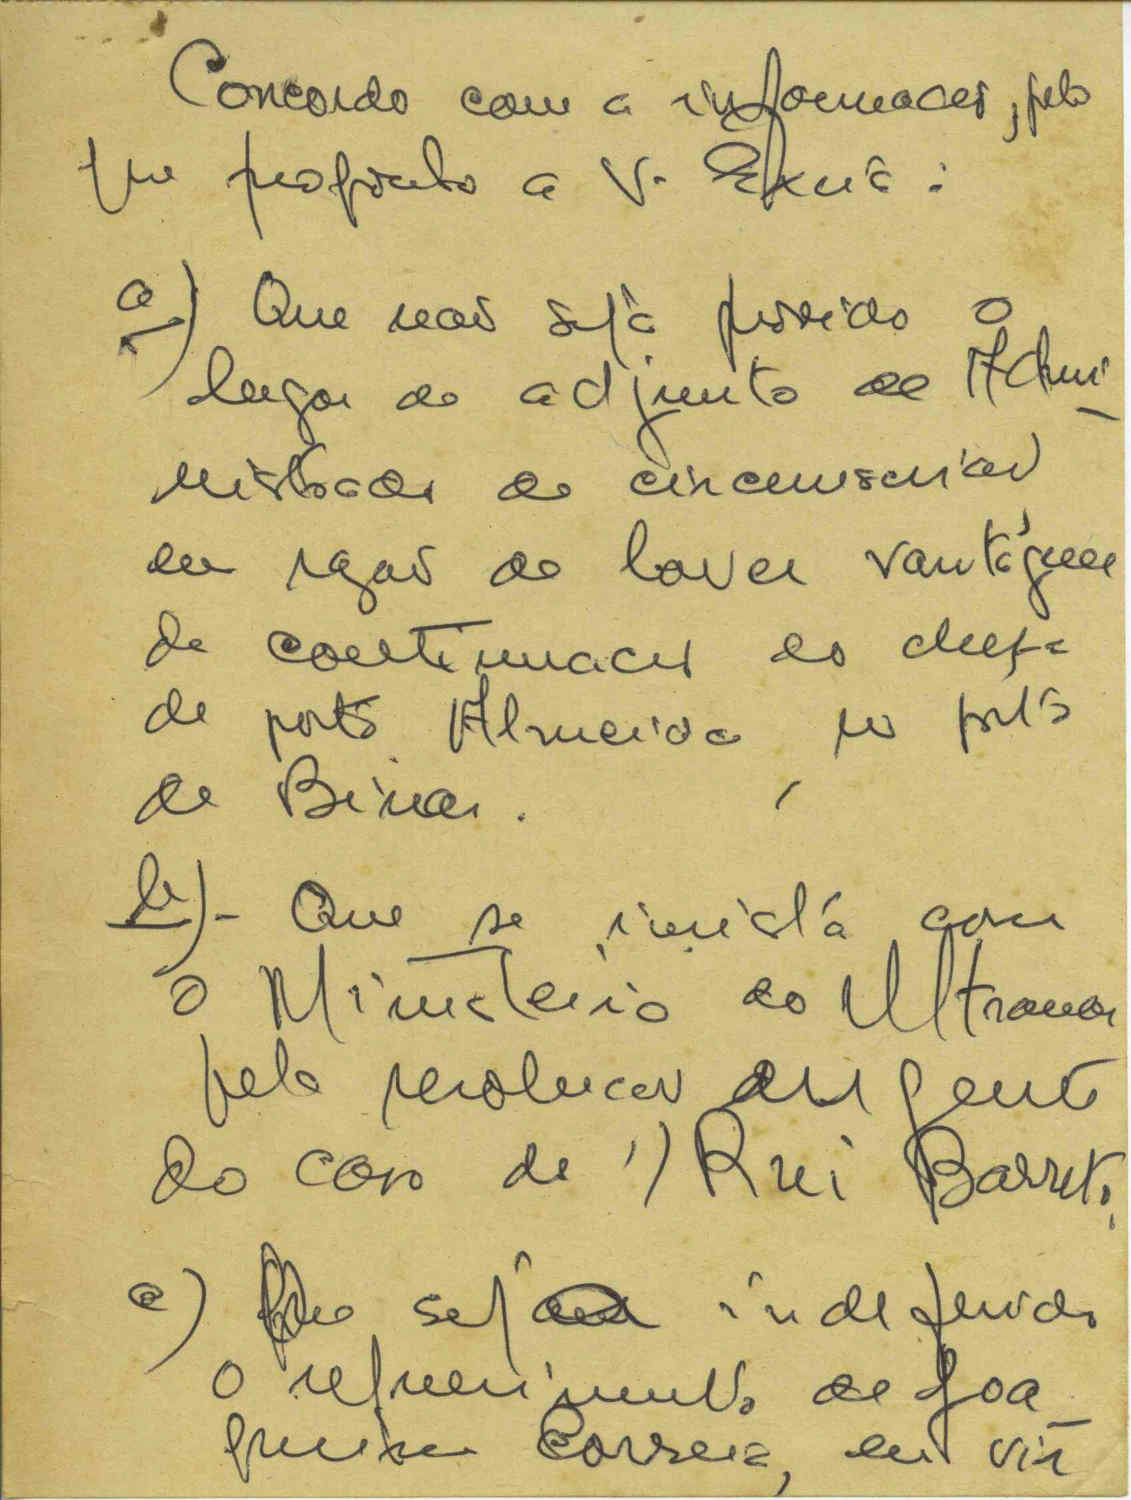 Concordo com a informação, pelo
que proponho a V. Exciª:
a) Que não seja provido o
lugar de adjunto de Admi-
nistrador de circunscrição
em razão de haver vantagem
da continuação do chefe
de posto Almeida, no posto
de Binar.
b)- Que se insista com
o Ministerio do Ultramar
pela resolução urgente
do caso de Rui Barreto,
c) Que seja indeferido
o requerimento de Joa
quim Correia, em vir